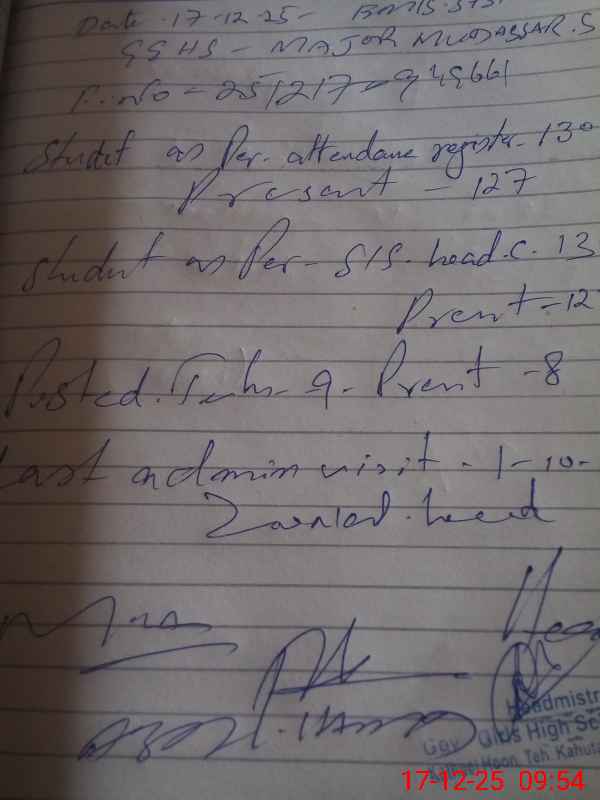 Date. 17-12-25-
GGHS - MAJOR MUDASSAR. S
F. No = 251217-949661
Studet as Per. attendane register - 130
Present - 127
Student as Per - SIS. head. C. 13
Prent - 12
Posted. Tehs - 9 - Prent - 8
Last admin visit - 1-10-
head
Headmistr
Gov. Girls High Sc
Hoon, Teh. Kahuta
17-12-25 09:54